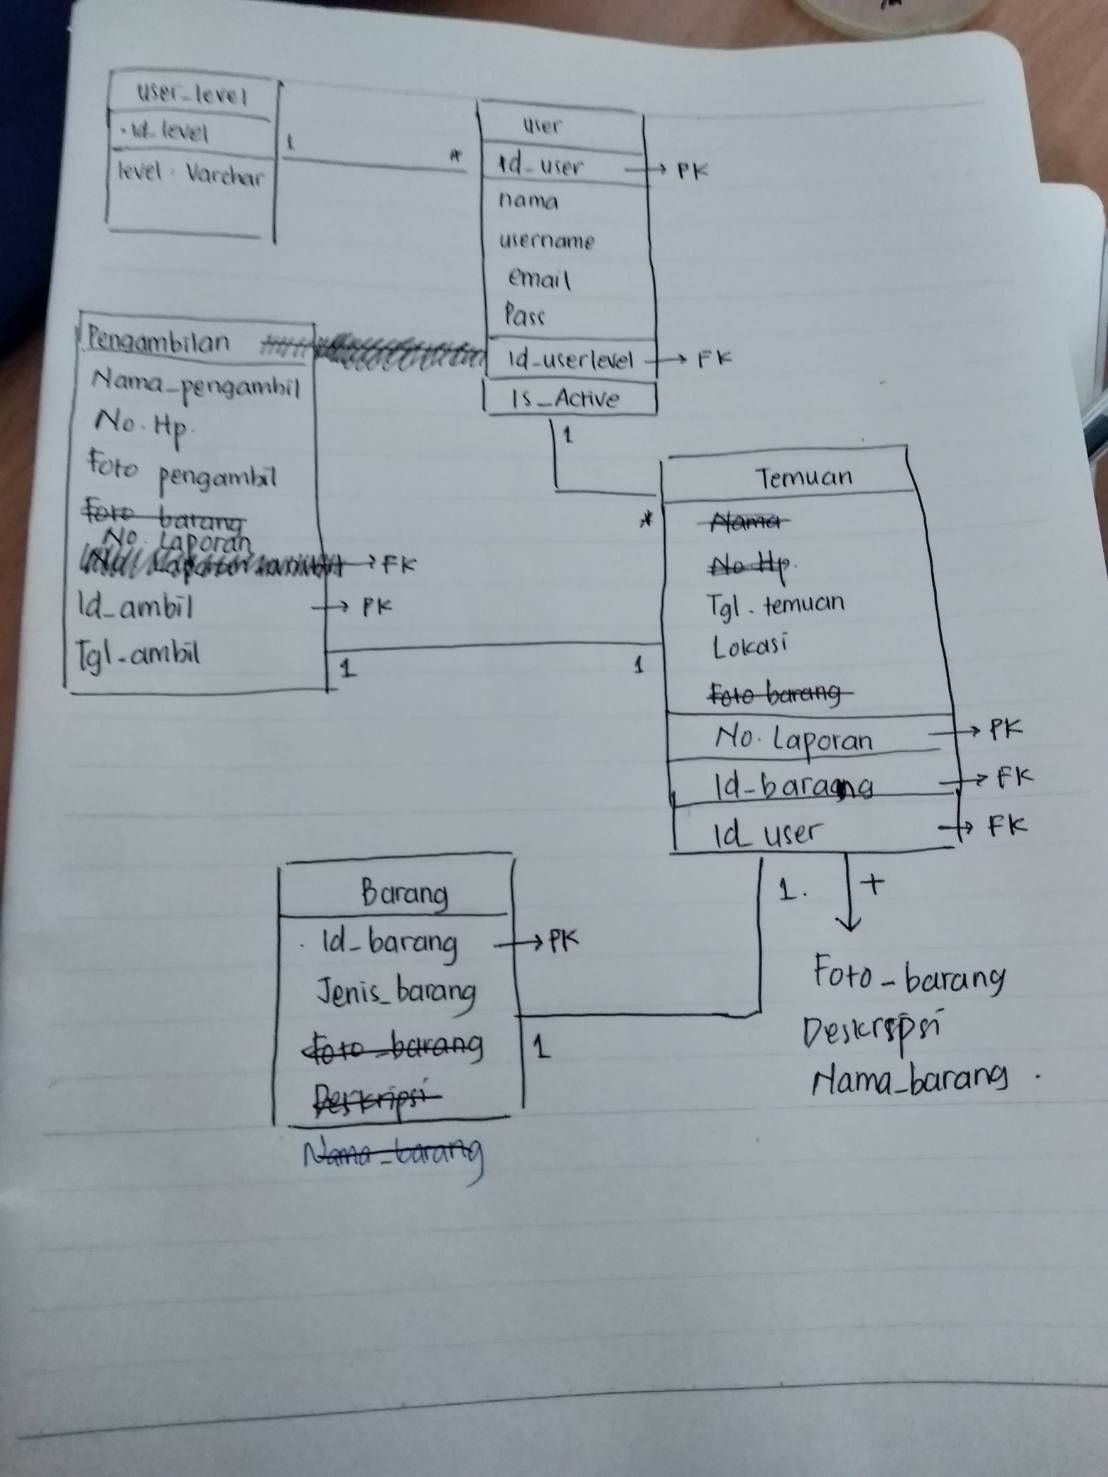 user_level
.id_level
level : Varchar
1
*
user
id_user → PK
nama
username
email
Pass
id_userlevel → FK
Is_Active
1
*
Pengambilan
Nama_pengambil
No. Hp.
Foto pengambil
Foto barang
No. Laporan
→ FK
Id_ambil → PK
Tgl_ambil
1
1
Temuan
Nama
No Hp.
Tgl. temuan
Lokasi
Foto barang
No. Laporan → PK
Id_barang → FK
Id_user → FK
1.
+
Foto_barang
Deskripsi
Nama_barang.
Barang
. Id_barang → PK
Jenis_barang
Foto_barang
1
Deskripsi
Nama_barang